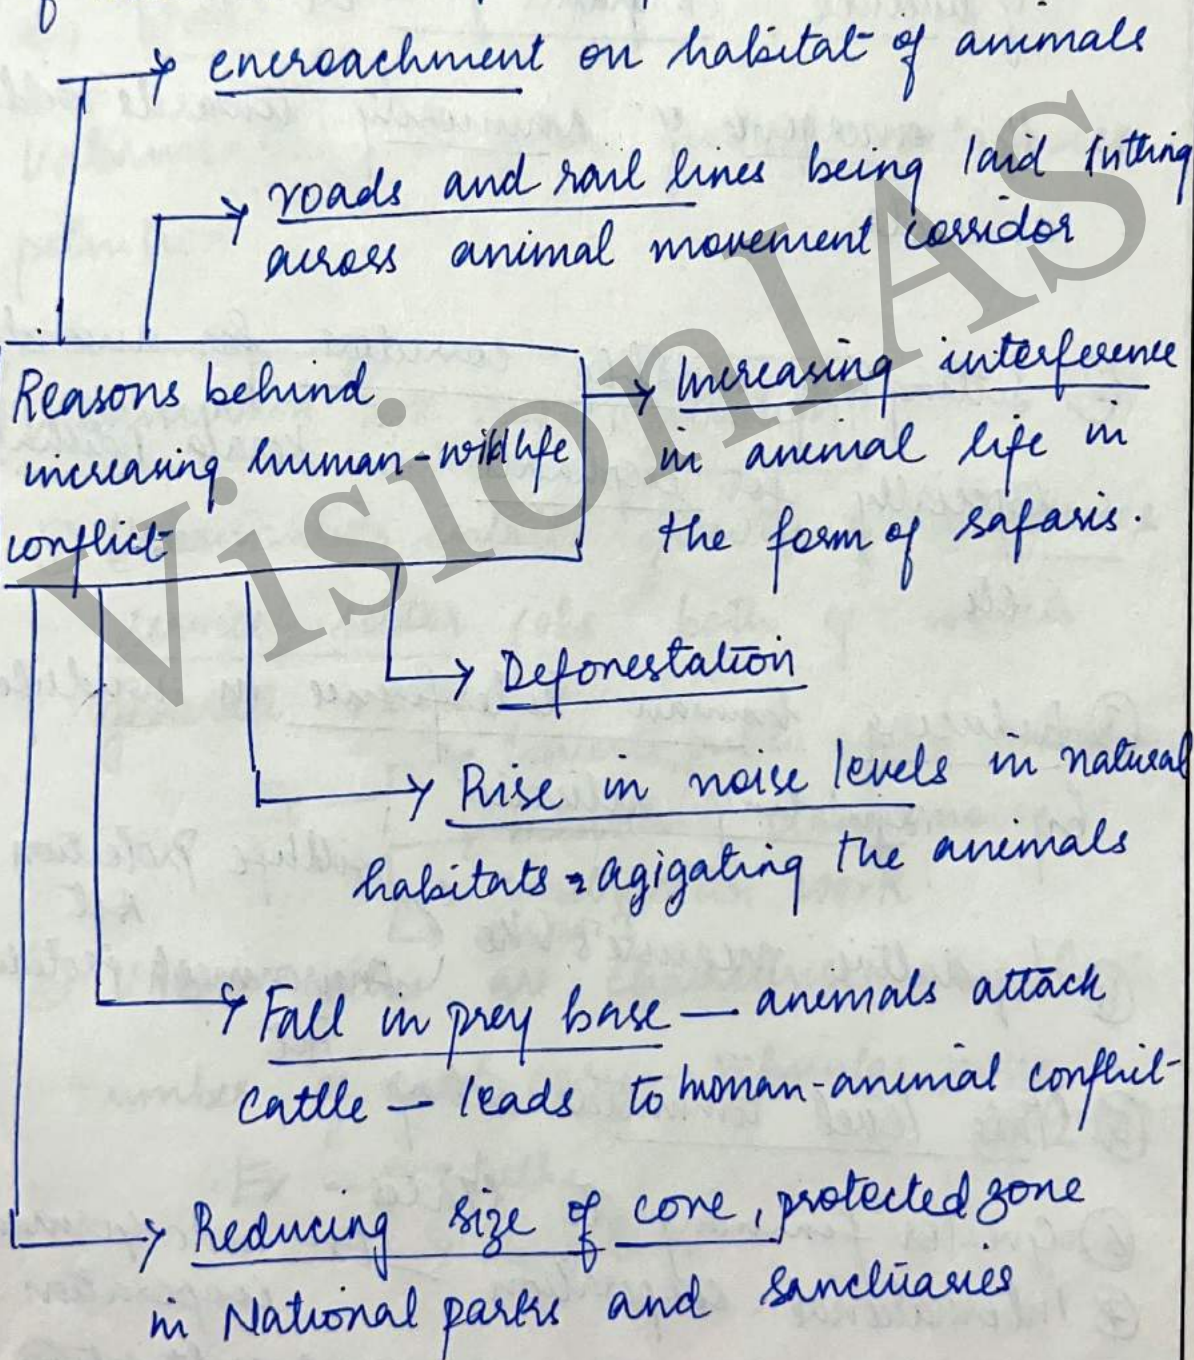 encroachment on habitat of animals
roads and rail lines being laid cutting
across animal movement corridor
Reasons behind
increasing human-wildlife
conflict
Increasing interference
in animal life in
the form of safaris.
Deforestation
Rise in noise levels in natural
habitats agigating the animals
Fall in prey base — animals attack
cattle — leads to human-animal conflict
Reducing size of core, protected zone
in National parks and sanctuaries
VisionIAS